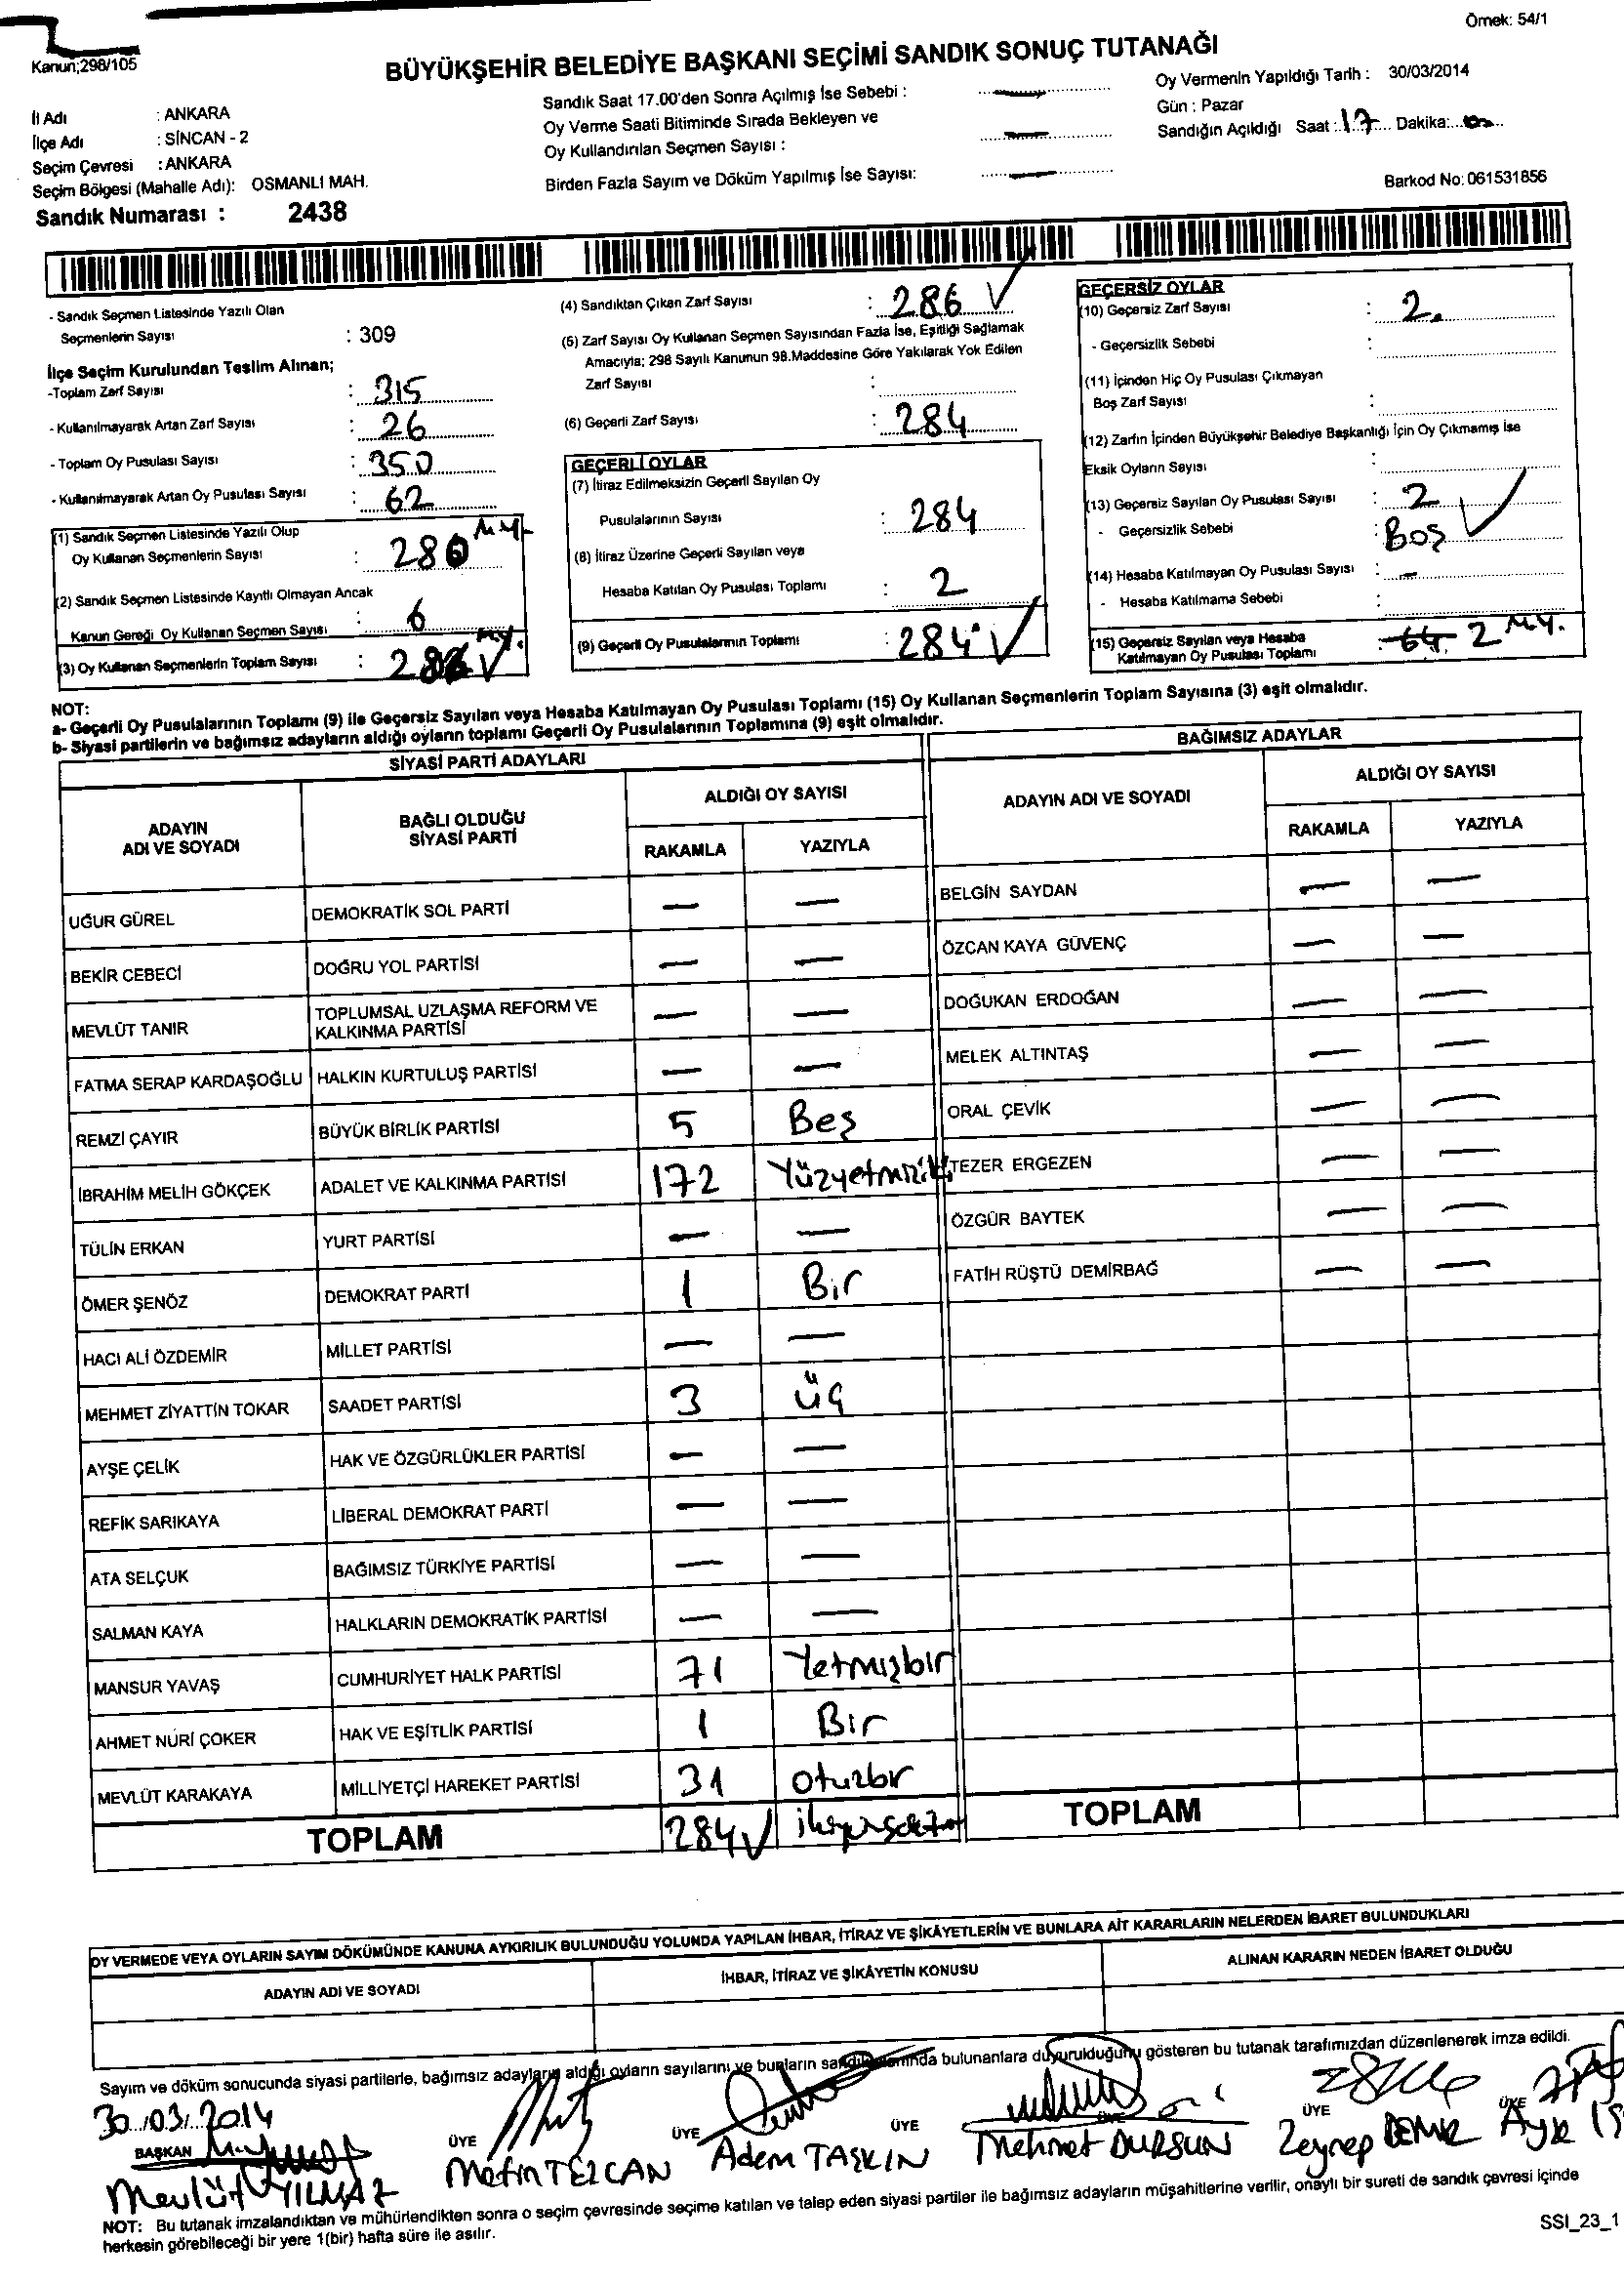 Örnek: 54/1
Kanun;298/105
BÜYÜKŞEHİR BELEDİYE BAŞKANI SEÇİMİ SANDIK SONUÇ TUTANAĞI
İl Adı : ANKARA
İlçe Adı : SİNCAN - 2
Seçim Çevresi : ANKARA
Seçim Bölgesi (Mahalle Adı): OSMANLI MAH.
Sandık Numarası : 2438
Sandık Saat 17.00'den Sonra Açılmış İse Sebebi :
Oy Verme Saati Bitiminde Sırada Bekleyen ve
Oy Kullandırılan Seçmen Sayısı :
Birden Fazla Sayım ve Döküm Yapılmış İse Sayısı:
Oy Vermenin Yapıldığı Tarih : 30/03/2014
Gün : Pazar
Sandığın Açıldığı Saat : 17 Dakika:
Barkod No: 061531856
- Sandık Seçmen Listesinde Yazılı Olan
Seçmenlerin Sayısı : 309
İlçe Seçim Kurulundan Teslim Alınan;
-Toplam Zarf Sayısı : 315
- Kullanılmayarak Artan Zarf Sayısı : 26
- Toplam Oy Pusulası Sayısı : 350
- Kullanılmayarak Artan Oy Pusulası Sayısı : 62
(1) Sandık Seçmen Listesinde Yazılı Olup
Oy Kullanan Seçmenlerin Sayısı : 280 M.Y.
(2) Sandık Seçmen Listesinde Kayıtlı Olmayan Ancak
Kanun Gereği Oy Kullanan Seçmen Sayısı : 6
(3) Oy Kullanan Seçmenlerin Toplam Sayısı : 286 M.Y.
(4) Sandıktan Çıkan Zarf Sayısı : 286
(5) Zarf Sayısı Oy Kullanan Seçmen Sayısından Fazla İse, Eşitliği Sağlamak
Amacıyla; 298 Sayılı Kanunun 98.Maddesine Göre Yakılarak Yok Edilen
Zarf Sayısı :
(6) Geçerli Zarf Sayısı : 284
GEÇERLİ OYLAR
(7) İtiraz Edilmeksizin Geçerli Sayılan Oy
Pusulalarının Sayısı : 284
(8) İtiraz Üzerine Geçerli Sayılan veya
Hesaba Katılan Oy Pusulası Toplamı : 2
(9) Geçerli Oy Pusulalarının Toplamı : 284
GEÇERSİZ OYLAR
(10) Geçersiz Zarf Sayısı : 2
- Geçersizlik Sebebi :
(11) İçinden Hiç Oy Pusulası Çıkmayan
Boş Zarf Sayısı :
(12) Zarfın İçinden Büyükşehir Belediye Başkanlığı İçin Oy Çıkmamış İse
Eksik Oyların Sayısı :
(13) Geçersiz Sayılan Oy Pusulası Sayısı : 2
- Geçersizlik Sebebi : Boş
(14) Hesaba Katılmayan Oy Pusulası Sayısı : -
- Hesaba Katılmama Sebebi :
(15) Geçersiz Sayılan veya Hesaba
Katılmayan Oy Pusulası Toplamı : 64 2 M.Y.
NOT:
a- Geçerli Oy Pusulalarının Toplamı (9) ile Geçersiz Sayılan veya Hesaba Katılmayan Oy Pusulası Toplamı (15) Oy Kullanan Seçmenlerin Toplam Sayısına (3) eşit olmalıdır.
b- Siyasi partilerin ve bağımsız adayların aldığı oyların toplamı Geçerli Oy Pusulalarının Toplamına (9) eşit olmalıdır.
SİYASİ PARTİ ADAYLARI
ADAYIN ADI VE SOYADI BAĞLI OLDUĞU SİYASİ PARTİ ALDIĞI OY SAYISI
RAKAMLA YAZIYLA
UĞUR GÜREL DEMOKRATİK SOL PARTİ — —
BEKİR CEBECİ DOĞRU YOL PARTİSİ — —
MEVLÜT TANIR TOPLUMSAL UZLAŞMA REFORM VE KALKINMA PARTİSİ — —
FATMA SERAP KARDAŞOĞLU HALKIN KURTULUŞ PARTİSİ — —
REMZİ ÇAYIR BÜYÜK BİRLİK PARTİSİ 5 Beş
İBRAHİM MELİH GÖKÇEK ADALET VE KALKINMA PARTİSİ 172 Yüzyetmişiki
TÜLİN ERKAN YURT PARTİSİ — —
ÖMER ŞENÖZ DEMOKRAT PARTİ 1 Bir
HACI ALİ ÖZDEMİR MİLLET PARTİSİ — —
MEHMET ZİYATTİN TOKAR SAADET PARTİSİ 3 üç
AYŞE ÇELİK HAK VE ÖZGÜRLÜKLER PARTİSİ — —
REFİK SARIKAYA LİBERAL DEMOKRAT PARTİ — —
ATA SELÇUK BAĞIMSIZ TÜRKİYE PARTİSİ — —
SALMAN KAYA HALKLARIN DEMOKRATİK PARTİSİ — —
MANSUR YAVAŞ CUMHURİYET HALK PARTİSİ 71 Yetmişbir
AHMET NURİ ÇOKER HAK VE EŞİTLİK PARTİSİ 1 Bir
MEVLÜT KARAKAYA MİLLİYETÇİ HAREKET PARTİSİ 31 otuzbir
TOPLAM 284
BAĞIMSIZ ADAYLAR
ADAYIN ADI VE SOYADI ALDIĞI OY SAYISI
RAKAMLA YAZIYLA
BELGİN SAYDAN — —
ÖZCAN KAYA GÜVENÇ — —
DOĞUKAN ERDOĞAN — —
MELEK ALTINTAŞ — —
ORAL ÇEVİK — —
TEZER ERGEZEN — —
ÖZGÜR BAYTEK — —
FATİH RÜŞTÜ DEMİRBAĞ — —
TOPLAM
OY VERMEDE VEYA OYLARIN SAYIM DÖKÜMÜNDE KANUNA AYKIRILIK BULUNDUĞU YOLUNDA YAPILAN İHBAR, İTİRAZ VE ŞİKÂYETLERİN VE BUNLARA AİT KARARLARIN NELERDEN İBARET BULUNDUKLARI
ADAYIN ADI VE SOYADI İHBAR, İTİRAZ VE ŞİKÂYETİN KONUSU ALINAN KARARIN NEDEN İBARET OLDUĞU
Sayım ve döküm sonucunda siyasi partilerle, bağımsız adayların aldığı oyların sayılarını ve bunların sandık bulunanlara duyurulduğunu gösteren bu tutanak tarafımızdan düzenlenerek imza edildi.
30/03/2014
BAŞKAN ÜYE ÜYE ÜYE ÜYE ÜYE ÜYE
Mevlüt YILMAZ Metin TEZCAN Adem TAŞKIN Mehmet DURSUN Zeynep DEMİR
NOT: Bu tutanak imzalandıktan ve mühürlendikten sonra o seçim çevresinde seçime katılan ve talep eden siyasi partiler ile bağımsız adayların müşahitlerine verilir, onaylı bir sureti de sandık çevresi içinde
herkesin görebileceği bir yere 1(bir) hafta süre ile asılır.
SSI_23_1